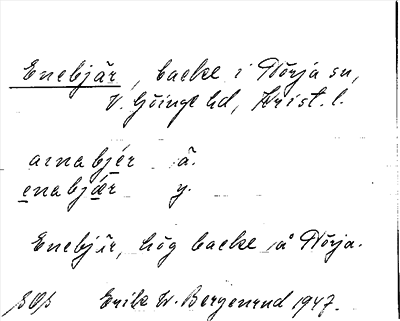 Enebjär, backe i Nörja sn,
V. Göinge hd, Krist. l.
ainabjér ä.
enabjǽr y.
Enebjär, hög backe å Nörja.
Erik W. Bergenrud 1947.